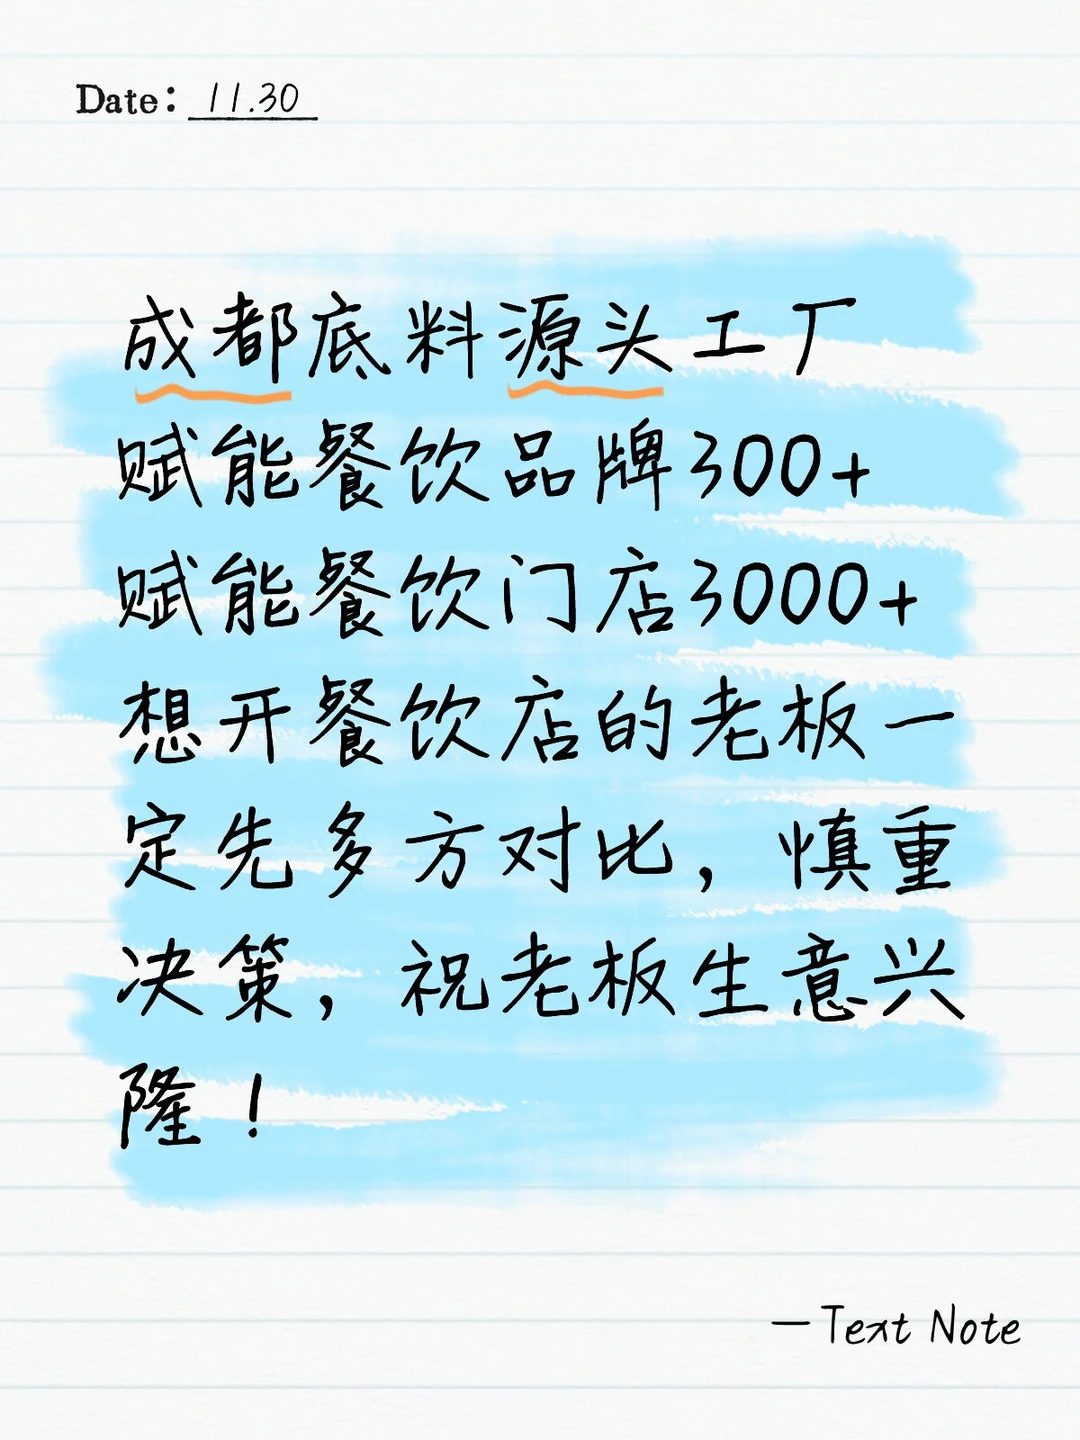 Date: 11.30
成都底料源头工厂
赋能餐饮品牌300+
赋能餐饮门店3000+
想开餐饮店的老板一
定先多方对比，慎重
决策，祝老板生意兴
隆！
—Text Note